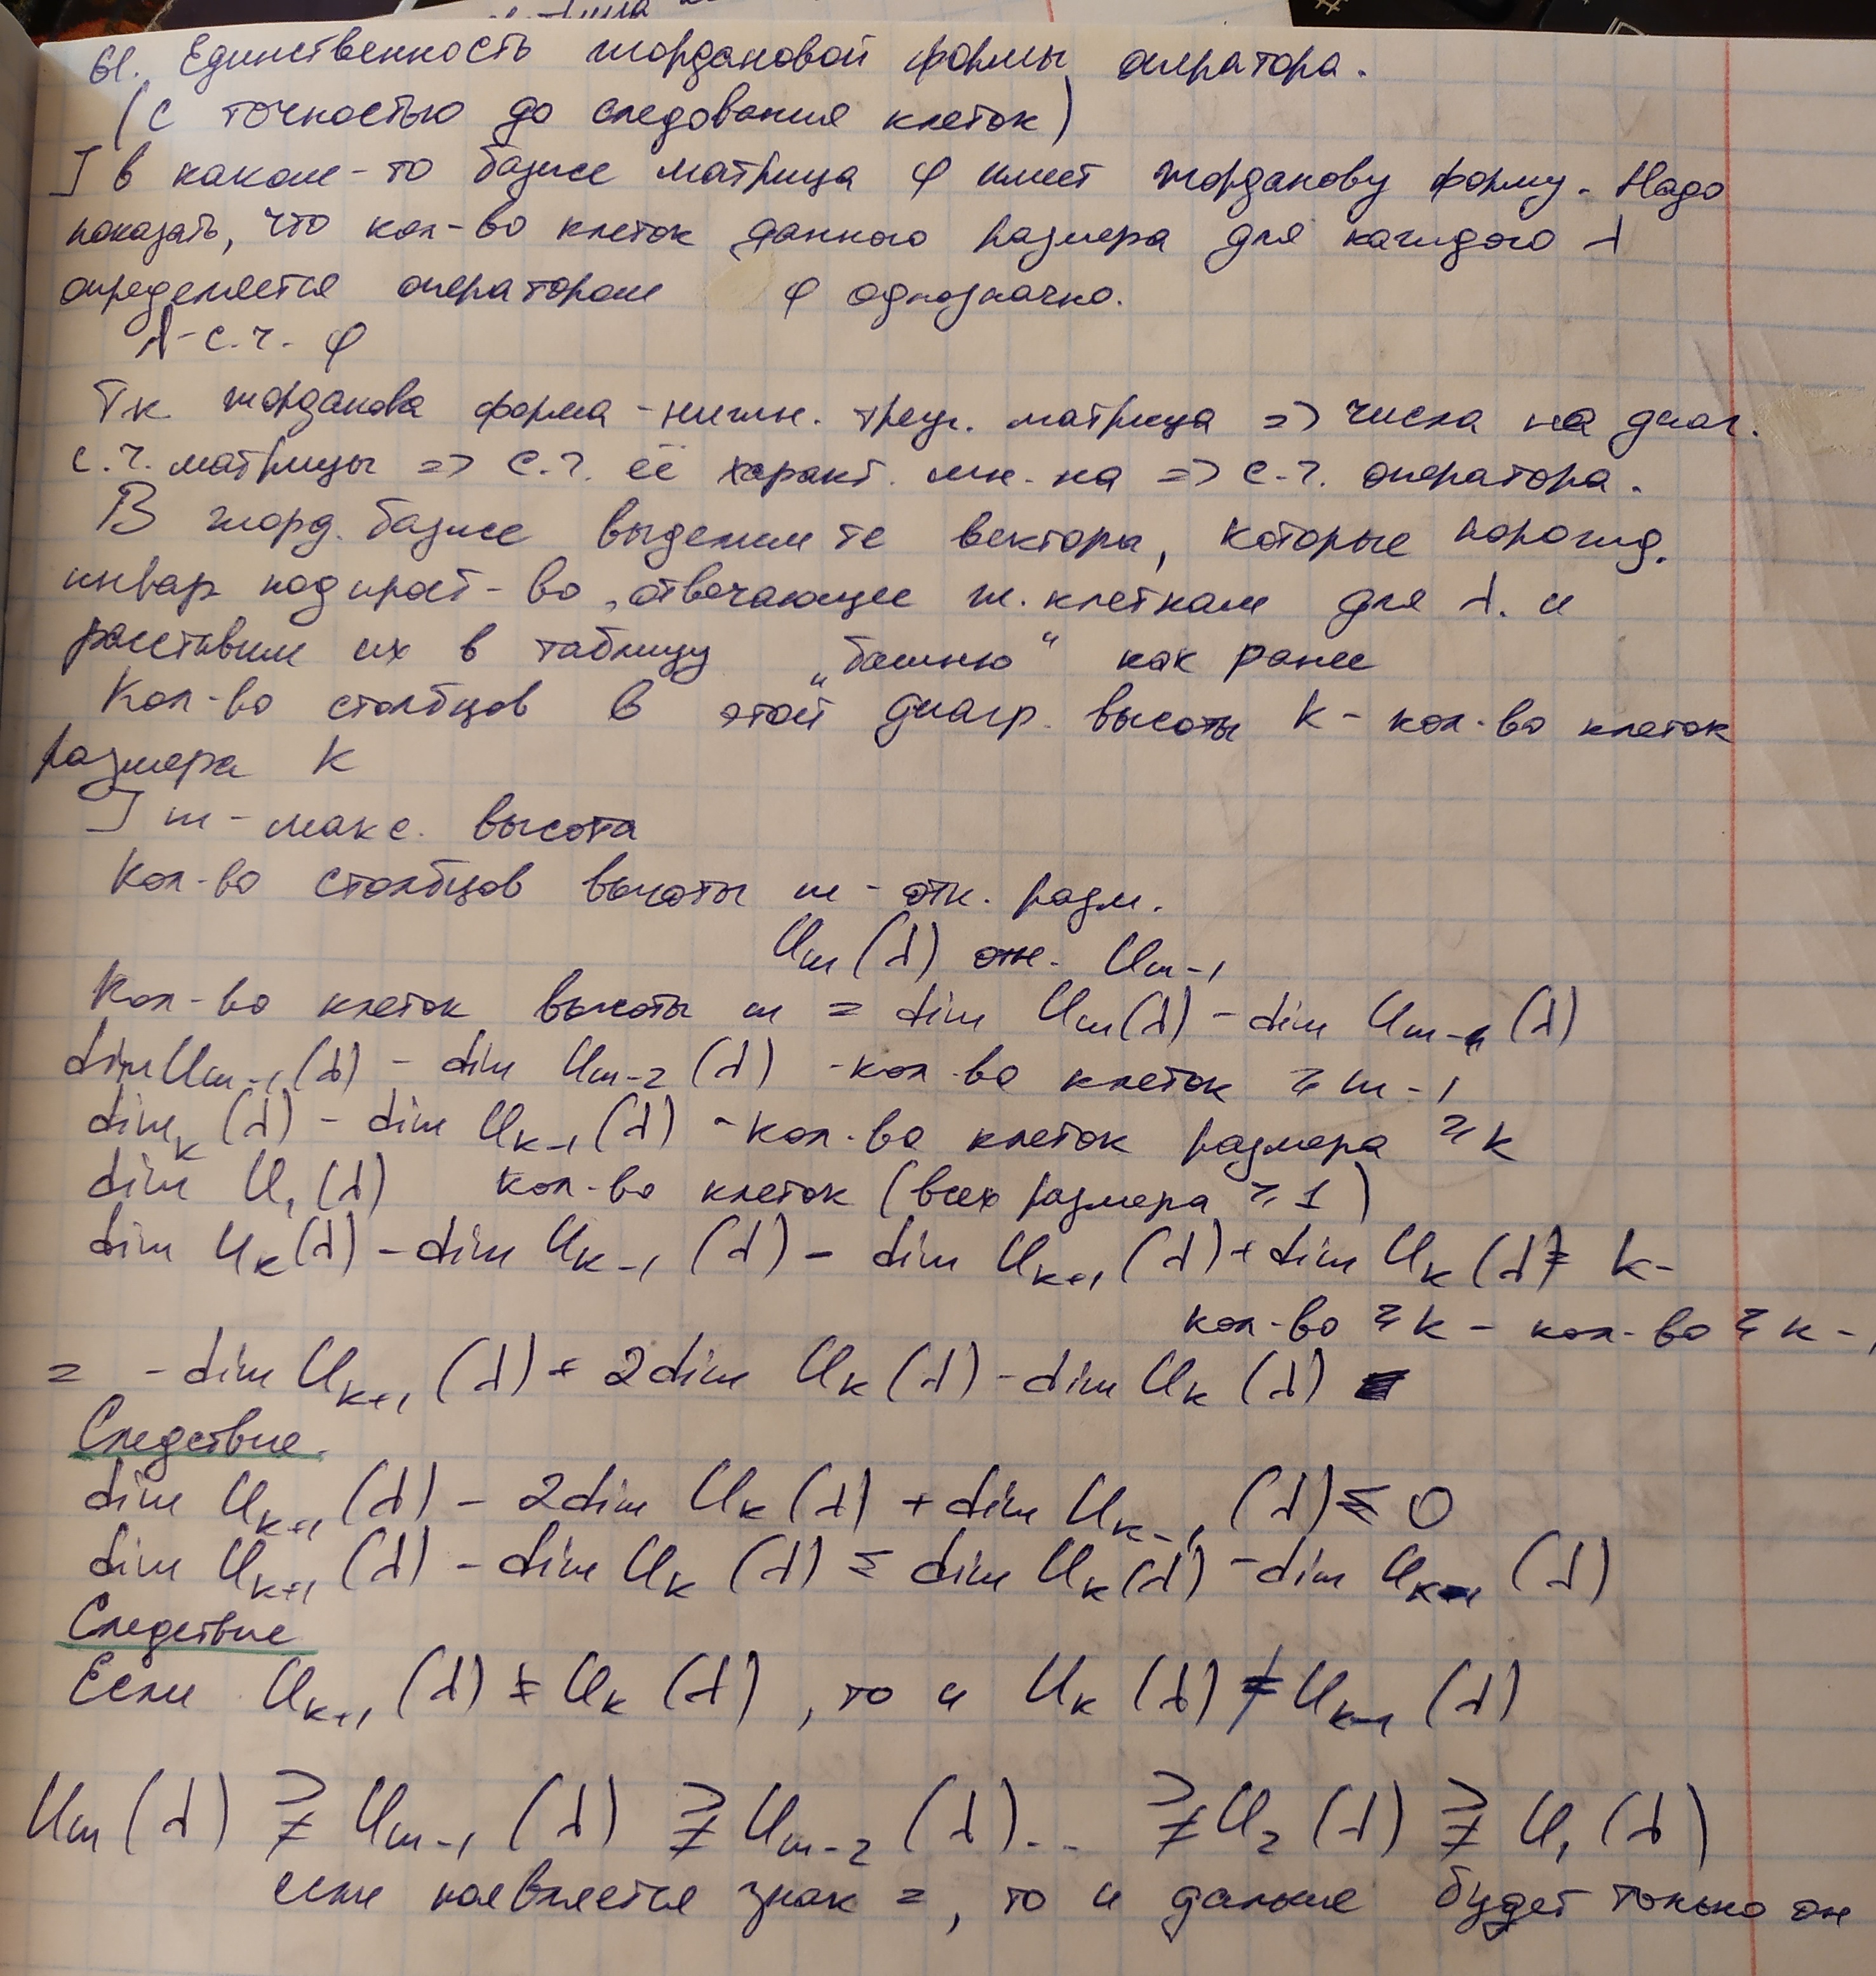 61. Единственность жордановой формы оператора.
(с точностью до следования клеток)
] в каком-то базисе матрица φ имеет жорданову форму. Надо
показать, что кол-во клеток данного размера для каждого λ
определяется оператором φ однозначно.
λ - с.ч. φ
Тк жорданова форма - нижн. треуг. матрица => числа на диаг.
с.ч. матрицы => с.ч. её характ. мн-на => с.ч. оператора.
В жорд. базисе выделим те векторы, которые порожд.
инвар подпрост-во, отвечающее ж. клеткам для λ. и
расставим их в таблицу „башню“ как ранее
Кол-во столбцов в этой диагр. высоты k - кол-во клеток
размера k
] m - макс. высота
Кол-во столбцов высоты m - отн. разм.
Um(λ) отн. Um-1
Кол-во клеток высоты m = dim Um(λ) - dim Um-1(λ)
dim Um-1(λ) - dim Um-2(λ) - кол-во клеток ≥ m-1
dim k(λ) - dim Uk-1(λ) - кол-во клеток размера ≥ k
dim U1(λ) кол-во клеток (всех размера ≥ 1)
dim Uk(λ) - dim Uk-1(λ) - dim Uk+1(λ) + dim Uk(λ) = k-
кол-во ≥ k - кол-во ≥ k-1
= - dim Uk+1(λ) + 2dim Uk(λ) - dim Uk(λ)
Следствие.
dim Uk+1(λ) - 2dim Uk(λ) + dim Uk-1(λ) ≤ 0
dim Uk+1(λ) - dim Uk(λ) ≤ dim Uk(λ) - dim Uk-1(λ)
Следствие
Если Uk+1(λ) ≠ Uk(λ), то и Uk(λ) ≠ Uk-1(λ)
Um(λ) ⊋ Um-1(λ) ⊋ Um-2(λ)... ⊋ U2(λ) ⊋ U1(λ)
если появляется знак =, то и дальше будет только он